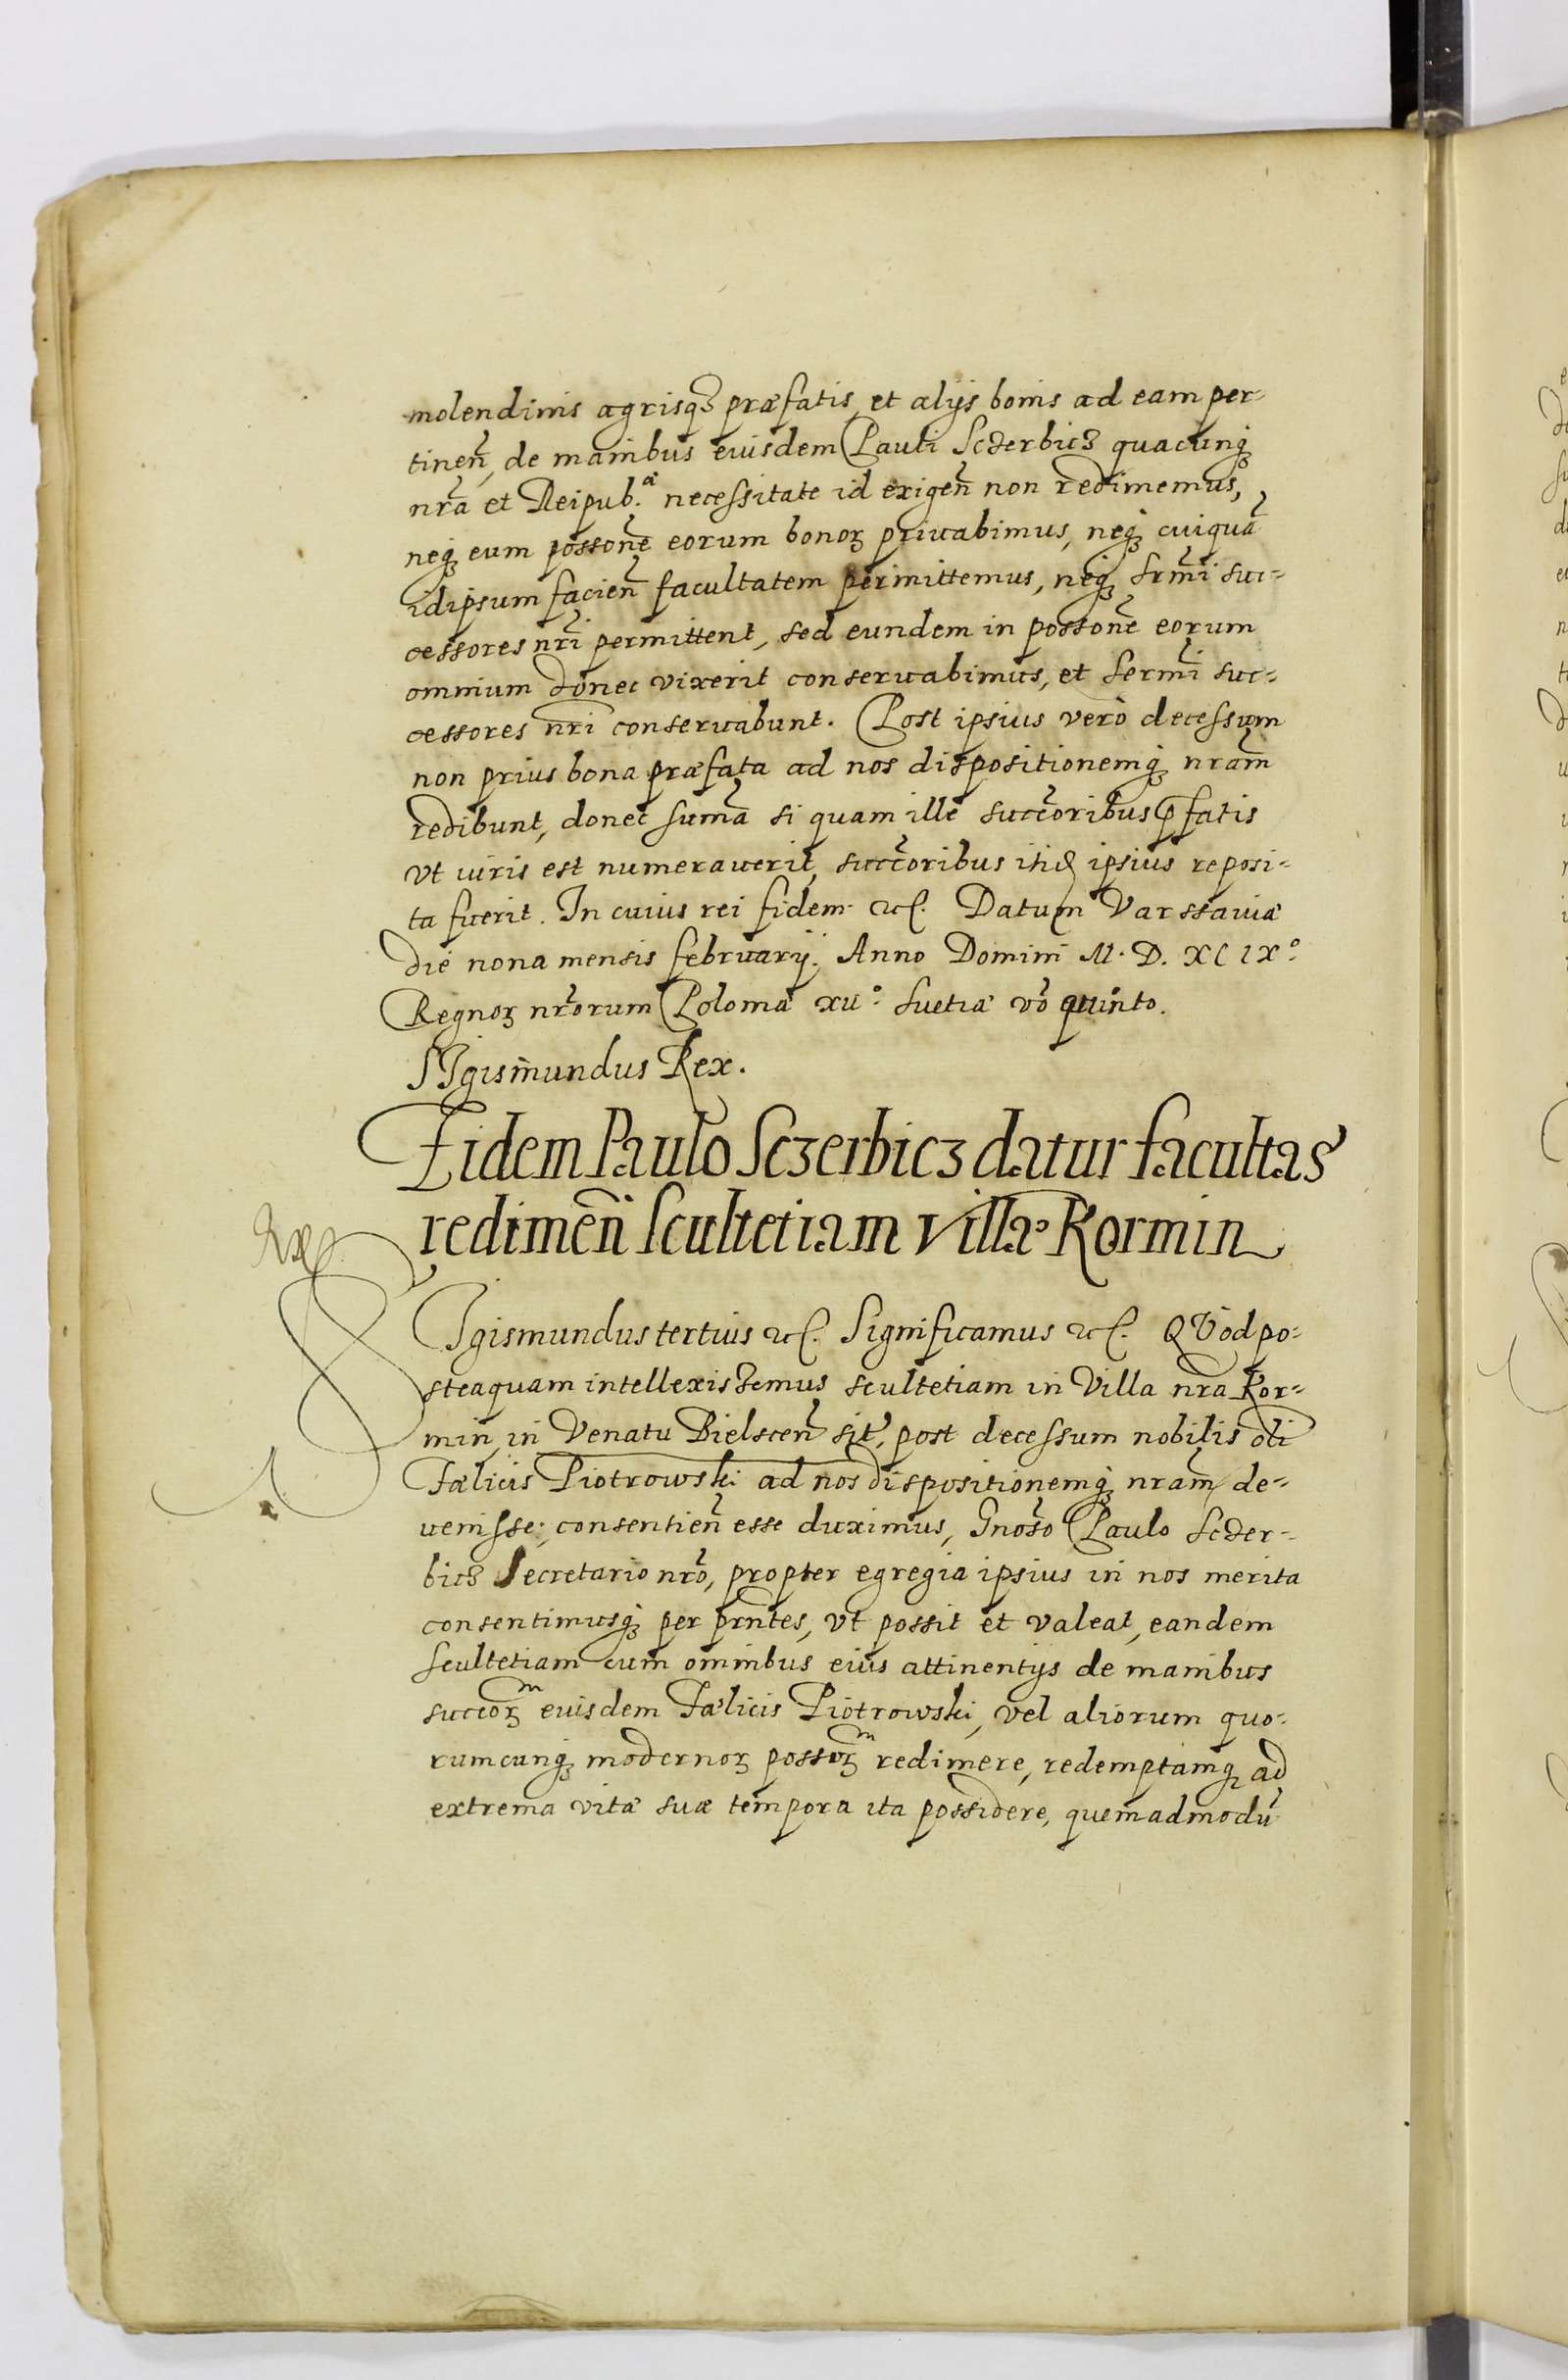 molendinis agrisqꝫ præfatis, et alijs bonis ad eam per-
tineñ, de manibus eiusdem Pauli Sczerbicz quacunqꝫ
nr̃a et Reipub.æ necessitate id exigeñ non redimemus,
neqꝫ eum possone̅ eorum bonoꝝ priuabimus, neqꝫ cuiquã
idipsum facieñ facultatem permittemus, neqꝫ srmi̅ suc-
cessores nri̅ permittent, sed eundem in possone̅ eorum
omnium donec vixerit conseruabimus, et sermi̅ suc-
cessores nri̅ conseruabunt. Post ipsius verò decessum
non prius bona præfata ad nos dispositionemqꝫ nram̅
redibunt, donec suma̅ si quam ille succ̅oribus p̄fatis
vt iuris est numerauerit, succ̅oribus itid ipsius reposi-
ta fuerit. In cuius rei fidem ꝛc. Datum Varssauiæ
die nona mensis februarij. Anno Domini M. D. XCIX.º
Regnoꝝ nr̃orum Poloniæ xii.º Suetiæ vo̅ quinto.
SIgismundus Rex.
Eidem Paulo Sczerbicz datur facultas
redimeñ scultetiam villæ Kormin
SIgismundus tertius ꝛc. Significamus ꝛc. QVòd po-
steaquam intellexissemus scultetiam in Villa nr̃a Kor-
min, in Venatu Bielsceñ sit̃, post decessum nobilis oli̅
Fælicis Piotrowski ad nos dispositionemqꝫ nram̅ de-
uenisse; consentieñ esse duximus, Gnoso̅ Paulo Sczer-
bicz Secretario nro̅, propter egregia ipsius in nos merita
consentimusqꝫ per prn̅tes, vt possit et valeat, eandem
scultetiam cum omnibus eius attinentijs de manibus
succoꝝm eiusdem Fælicis Piotrowski, vel aliorum quo-
rumcunqꝫ modernoꝝ possoꝝm redimere, redemptamqꝫ ad
extrema vitæ suæ tempora ita possidere, quemadmodu̅